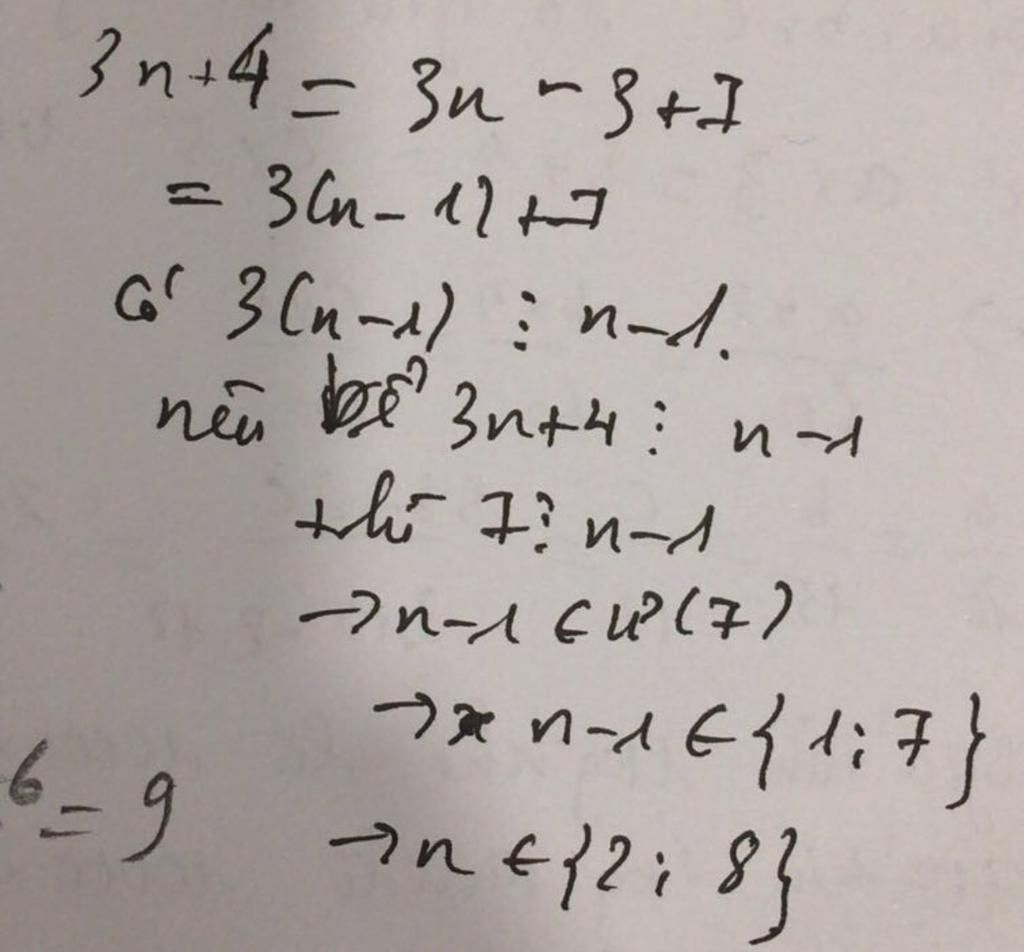 3n+4 = 3n - 3 + 7
= 3(n - 1) + 7
Có 3(n-1) ⋮ n-1.
nếu để 3n+4 ⋮ n-1
thì 7 ⋮ n-1
→ n-1 ∈ Ư(7)
→ n-1 ∈ { 1; 7 }
6 = 9
→ n ∈ {2; 8}